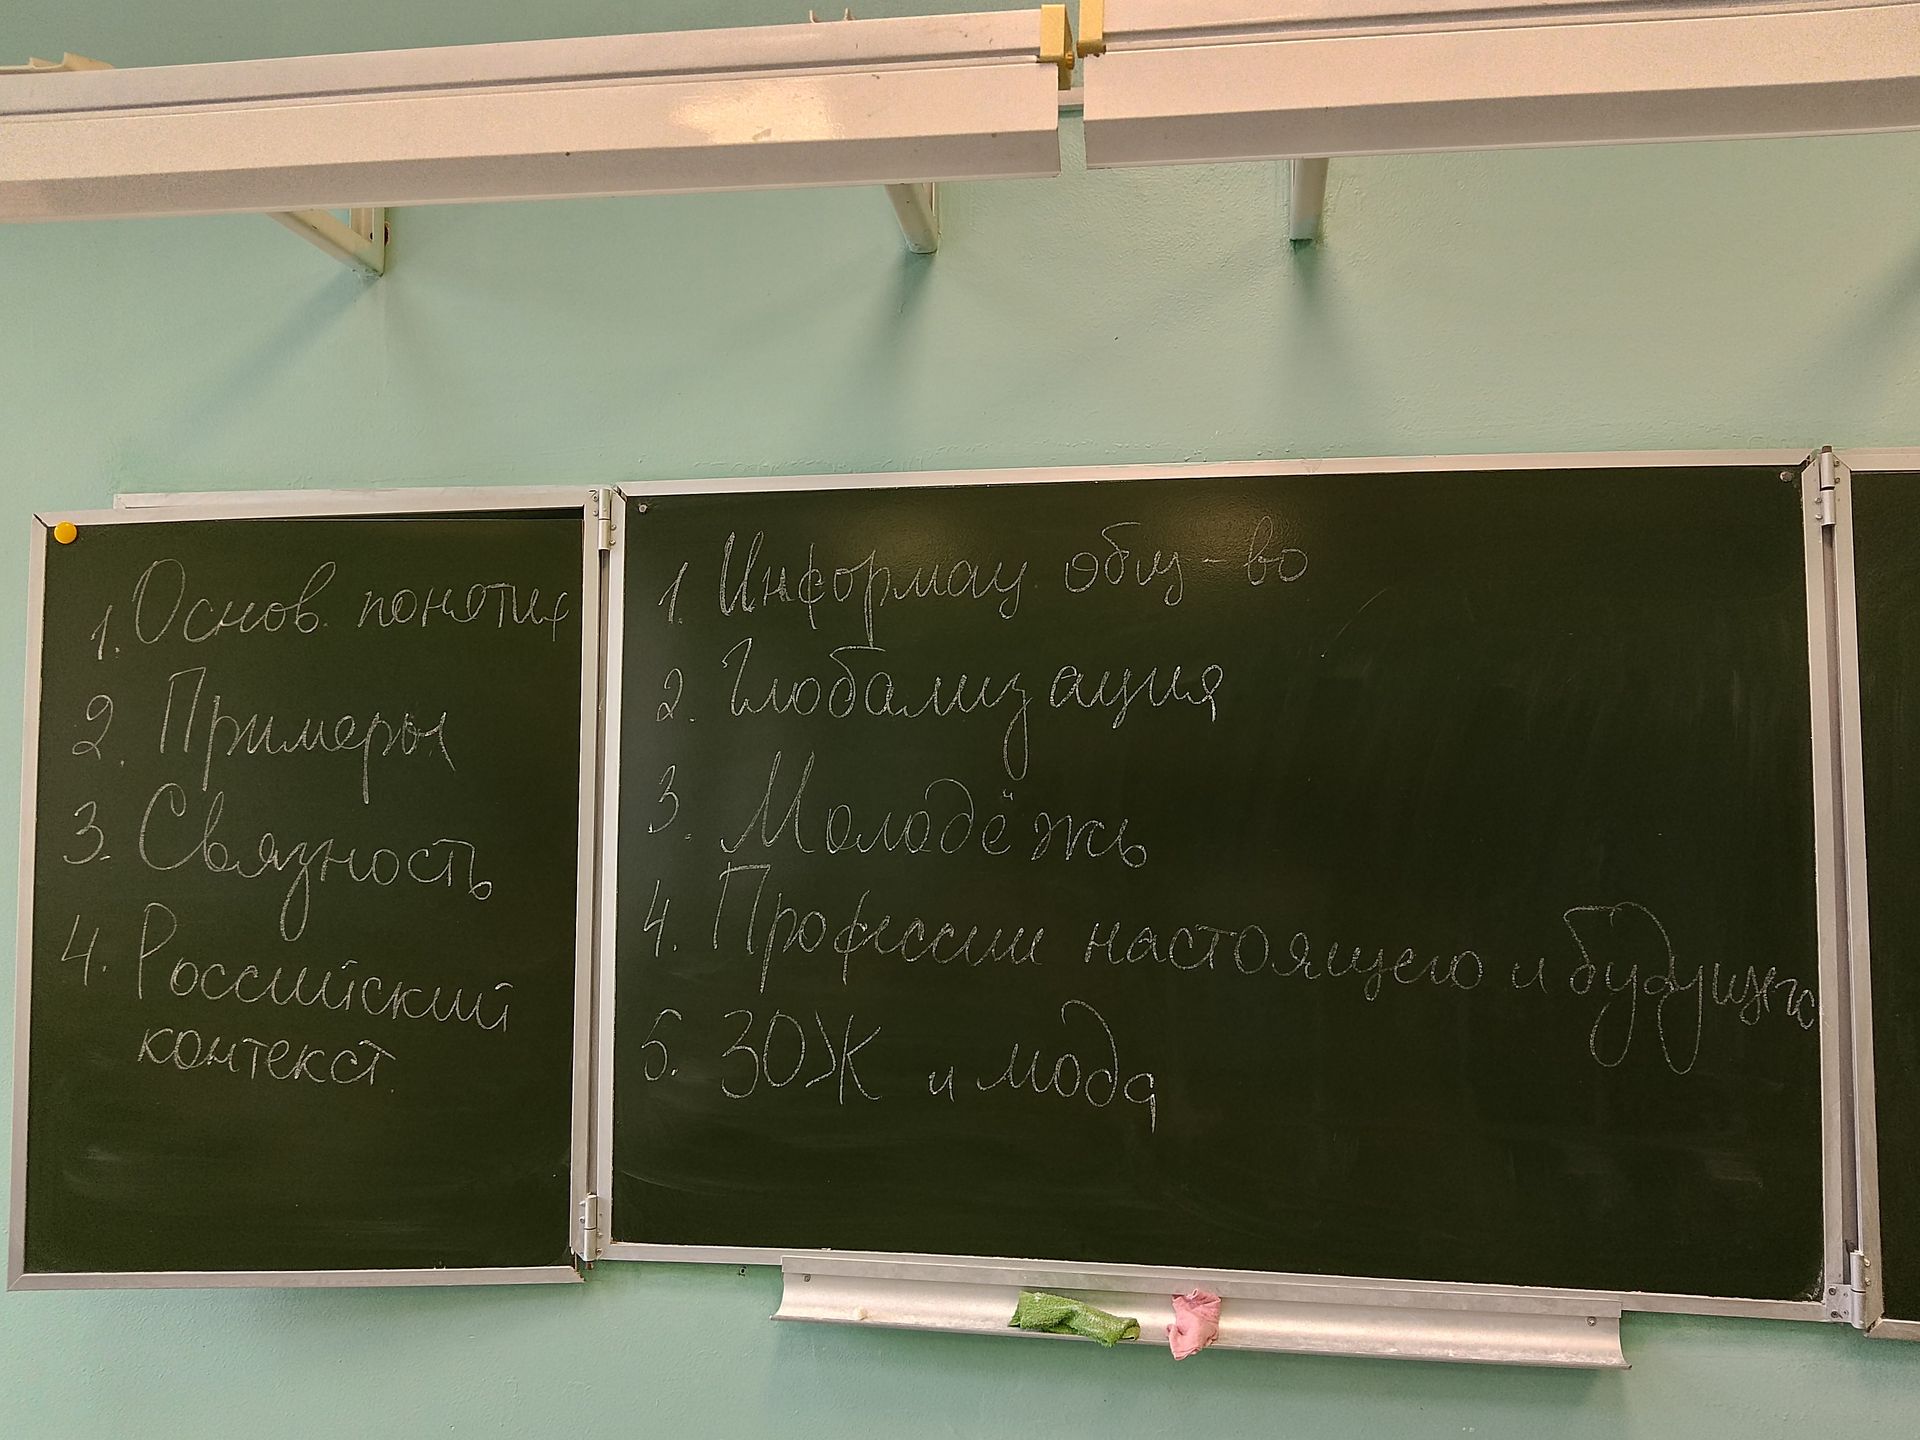 1. Основ. понятия
2. Примеры
3. Связность
4. Российский
контекст.
1. Информац. общ-во
2. Глобализация
3. Молодёжь
4. Профессии настоящего и будущего
5. ЗОЖ и мода